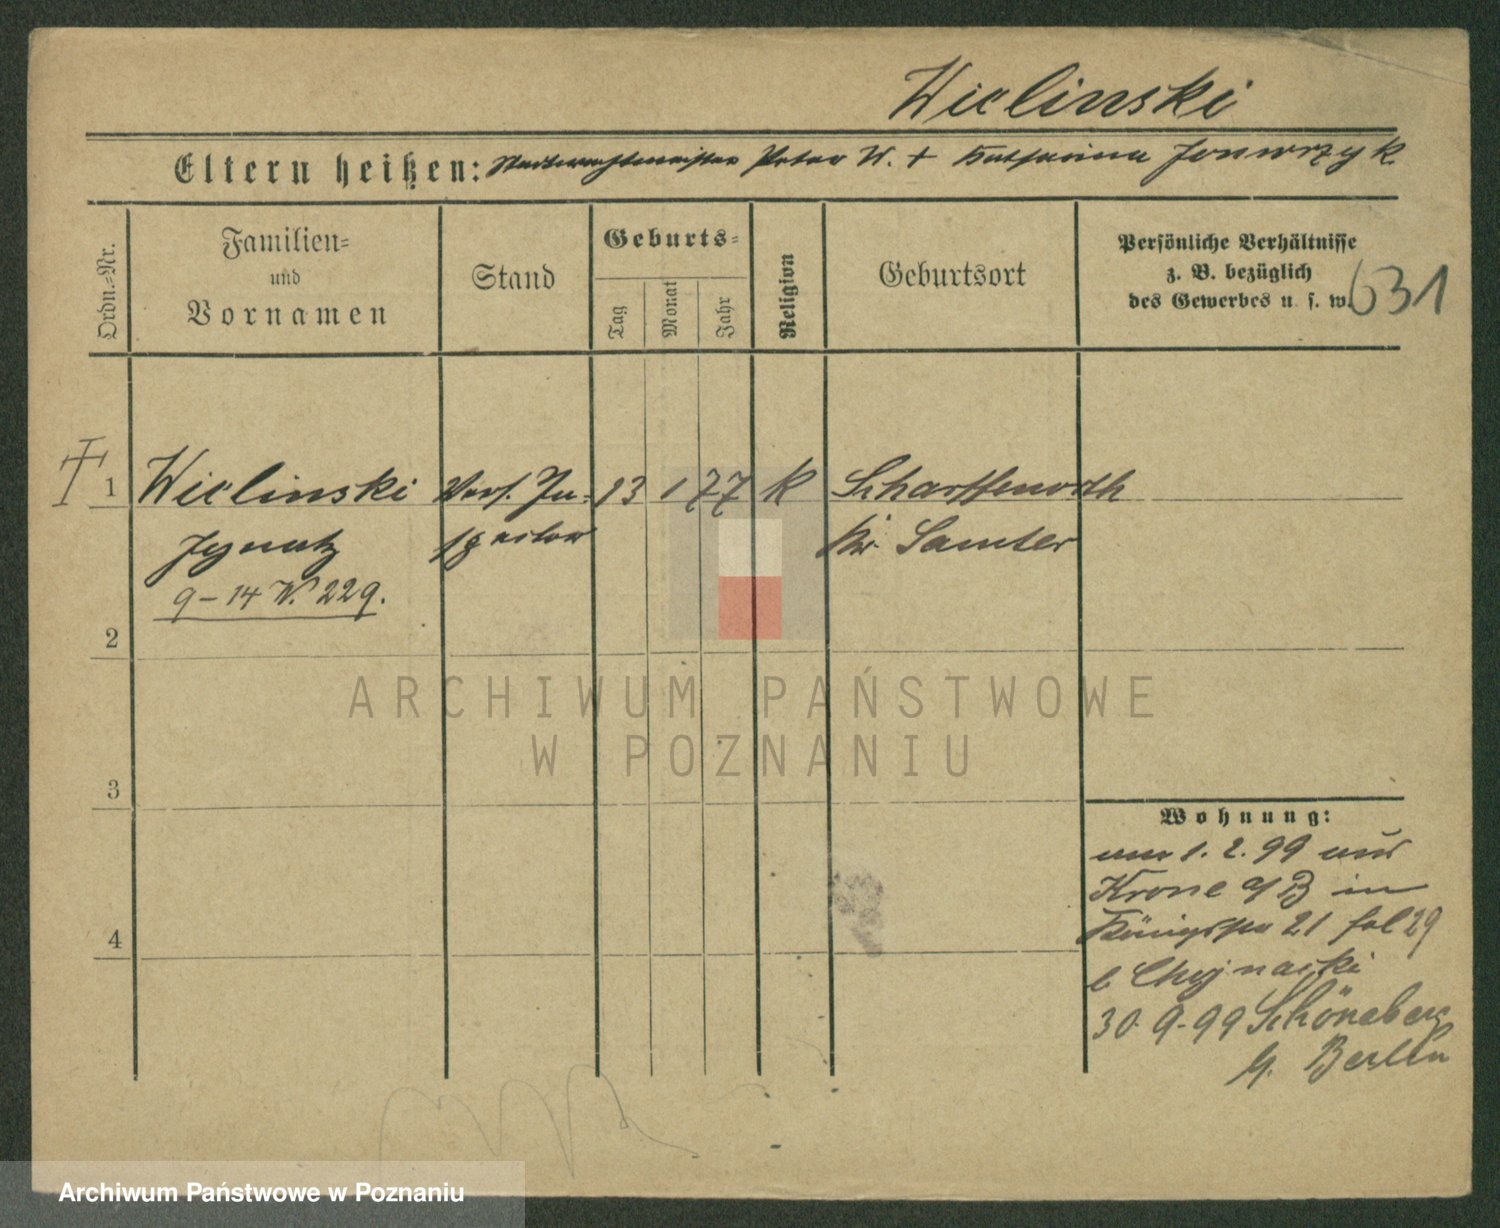 Wielinski
Eltern heißen: Stadtwachtmeister Peter W. + Katharina
Ordn.-Nr.
Familien-
und
Vornamen
Stand
Geburts-
Tag
Monat
Jahr
Religion
Geburtsort
Persönliche Verhältnisse
z. B. bezüglich
des Gewerbes u. s. w.
631
1 Wielinski Vers. In- 23 1 77 K Scharffenorth
Ignatz spector Kr. Samter
9-14 W. 229.
2
3
4
Wohnung:
am 1. 2. 99 aus
Krone a/B in
21 29
b
30. 9. 99 Schöneberg
b. Berlin
ARCHIWUM PAŃSTWOWE
W POZNANIU
Archiwum Państwowe w Poznaniu